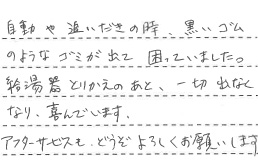 自動や追いだきの時、黒いゴム
のようなゴミが出て困っていました。
給湯器とりかえのあと、一切出なく
なり、喜んでいます。
アフターサービスも、どうぞよろしくお願いします